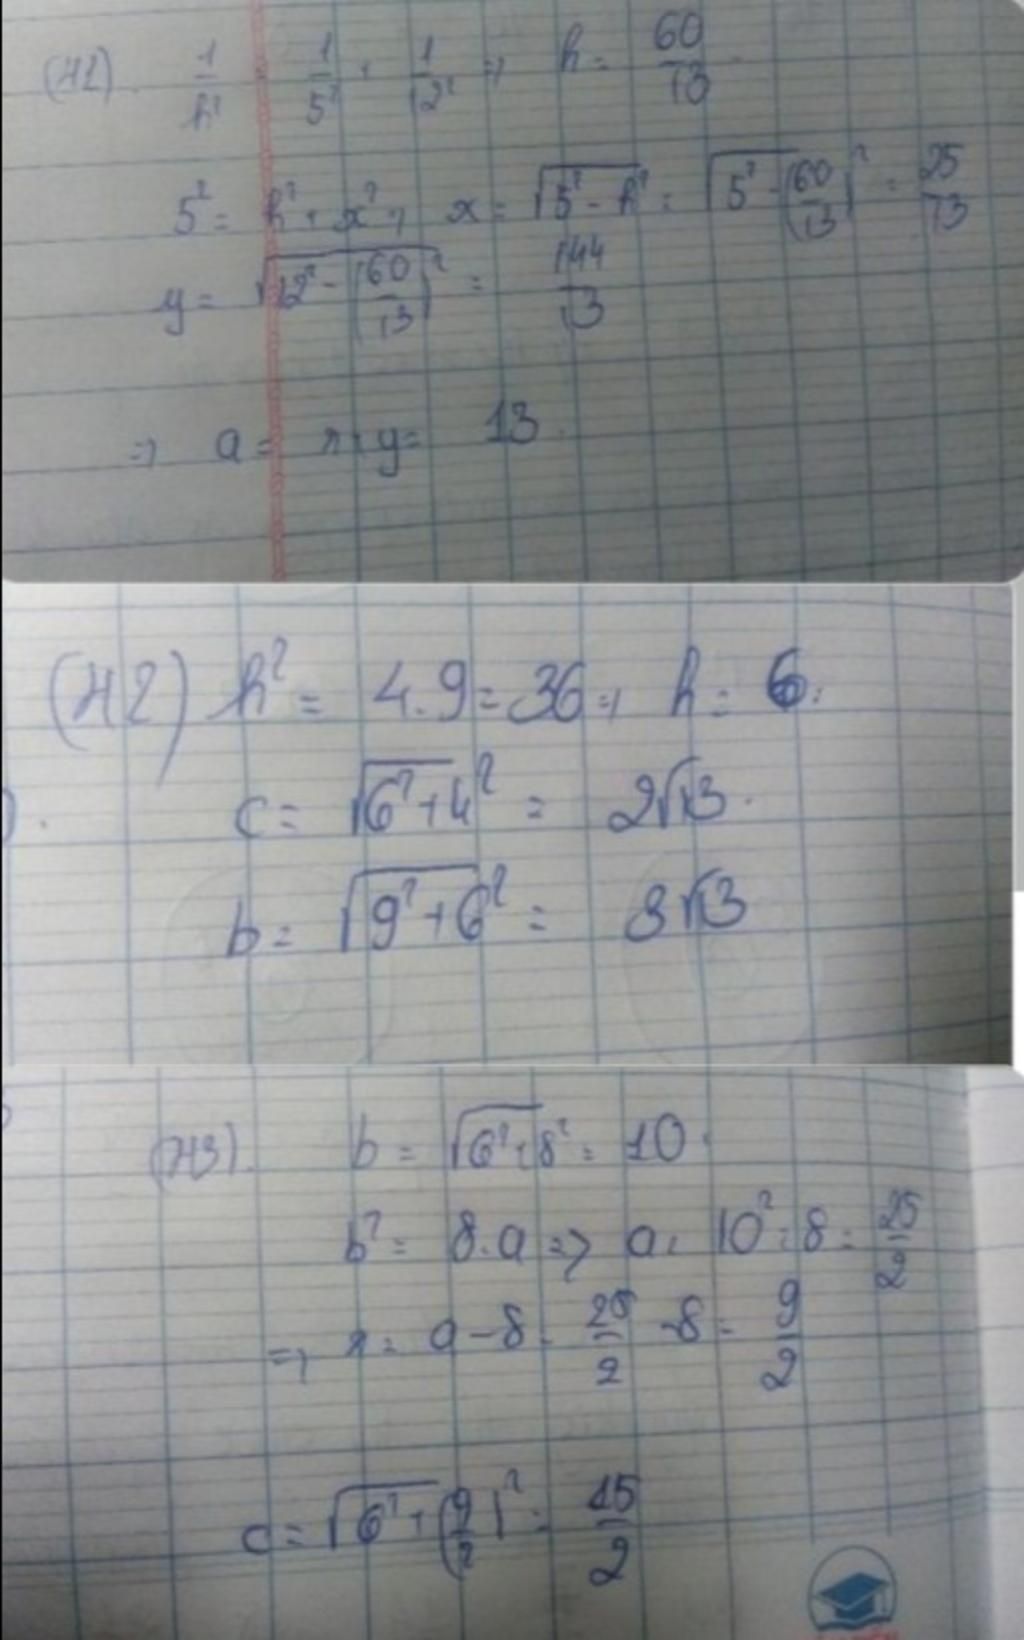 (H1). 1/h² = 1/5² + 1/12² => h = 60/13.
5² = h² + x² => x = √(5² - h²) = √(5² - (60/13)²) = 25/13
y = √(12² - (60/13)²) = 144/13
=> a = x + y = 13.
(H2) h² = 4.9 = 36 => h = 6.
c = √(6² + 4²) = 2√13.
b = √(9² + 6²) = 3√13
(H3). b = √(6² + 8²) = 10.
b² = 8.a => a = 10² : 8 = 25/2
=> x = a - 8 = 25/2 - 8 = 9/2
c = √(6² + (9/2)²) = 15/2